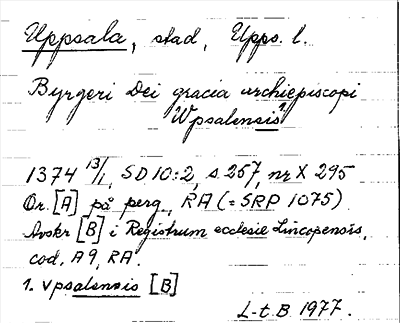 Uppsala, stad, Upps. l.
Byrgeri Dei gracia archiepiscopi
Wpsalensis 1.
1374 13/1, SD 10:2, s. 257, nr X 295
Or. [A] på perg., RA (= SRP 1075)
Avskr [B] i Registrum ecclesie Lincopensis,
cod. A 9, RA.
1. vpsalensis [B]
L-t.B. 1977.